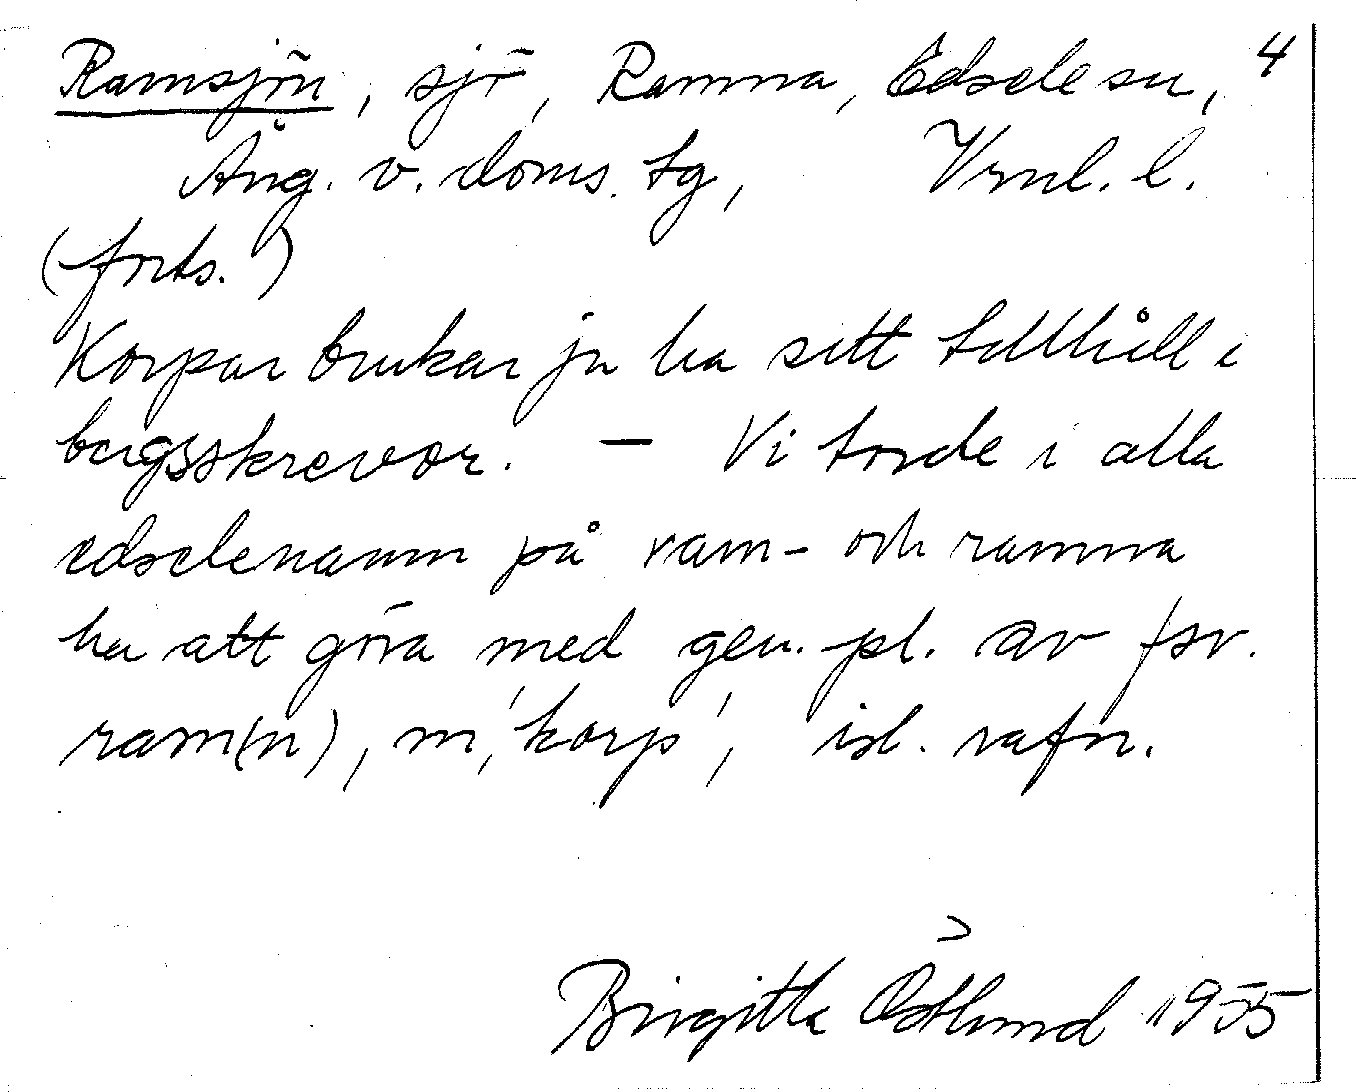 Ramsjön, sjö, Ramna, Edsele sn, 4
Ång. v. doms. tg, Vrnl. l.
(forts.)
Korpar brukar ju ha sitt tillhåll i
bergsskrevor. — Vi torde i alla
edselenamn på ram- och ramna
ha att göra med gen. pl. av fsv.
ram(n), m, 'korp', isl. rafn.
Birgitta Östlund 1955